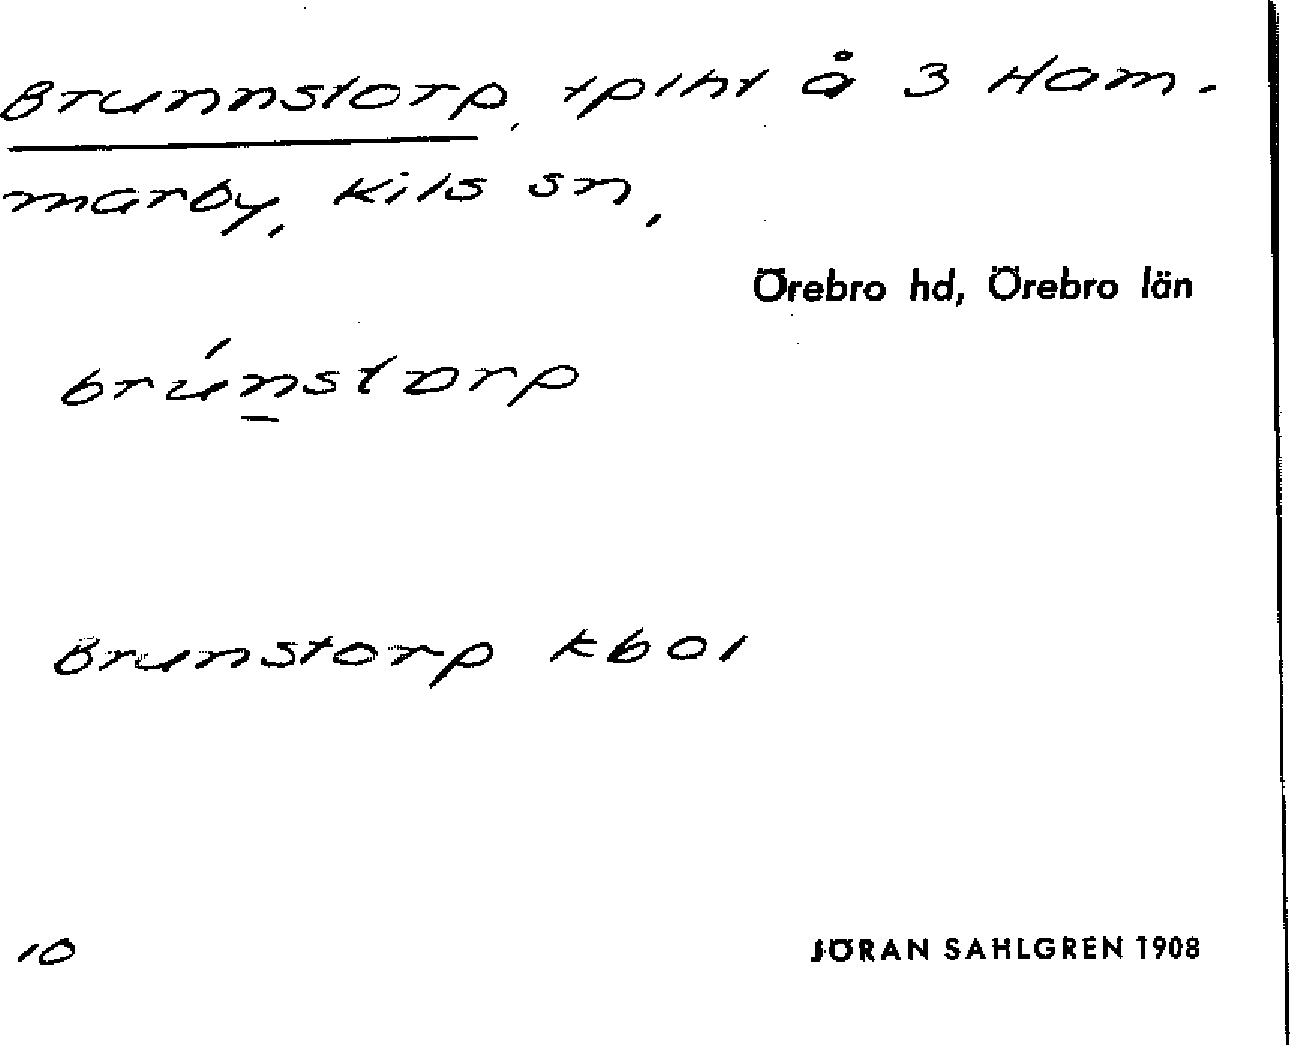 Brunnstorp, tplht å 3 Ham-
marby, Kils sn,
Örebro hd, Örebro län
brún̲storp
Brunstorp kb 01
10
JÖRAN SAHLGREN 1908